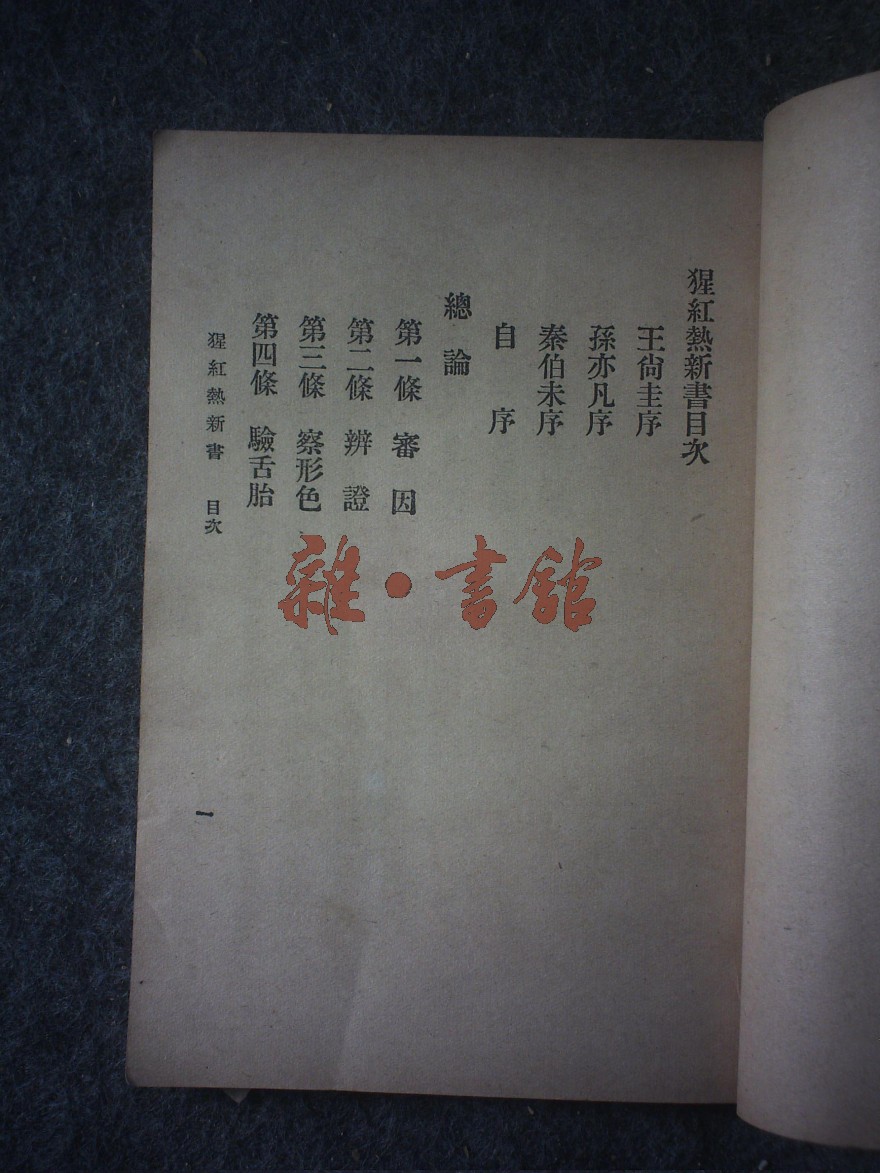 猩紅熱新書目次
王尙圭序
孫亦凡序
秦伯未序
自序
總論
第一條 審因
第二條 辨證
第三條 察形色
第四條 驗舌胎
猩紅熱新書 目次
一
雜·書館